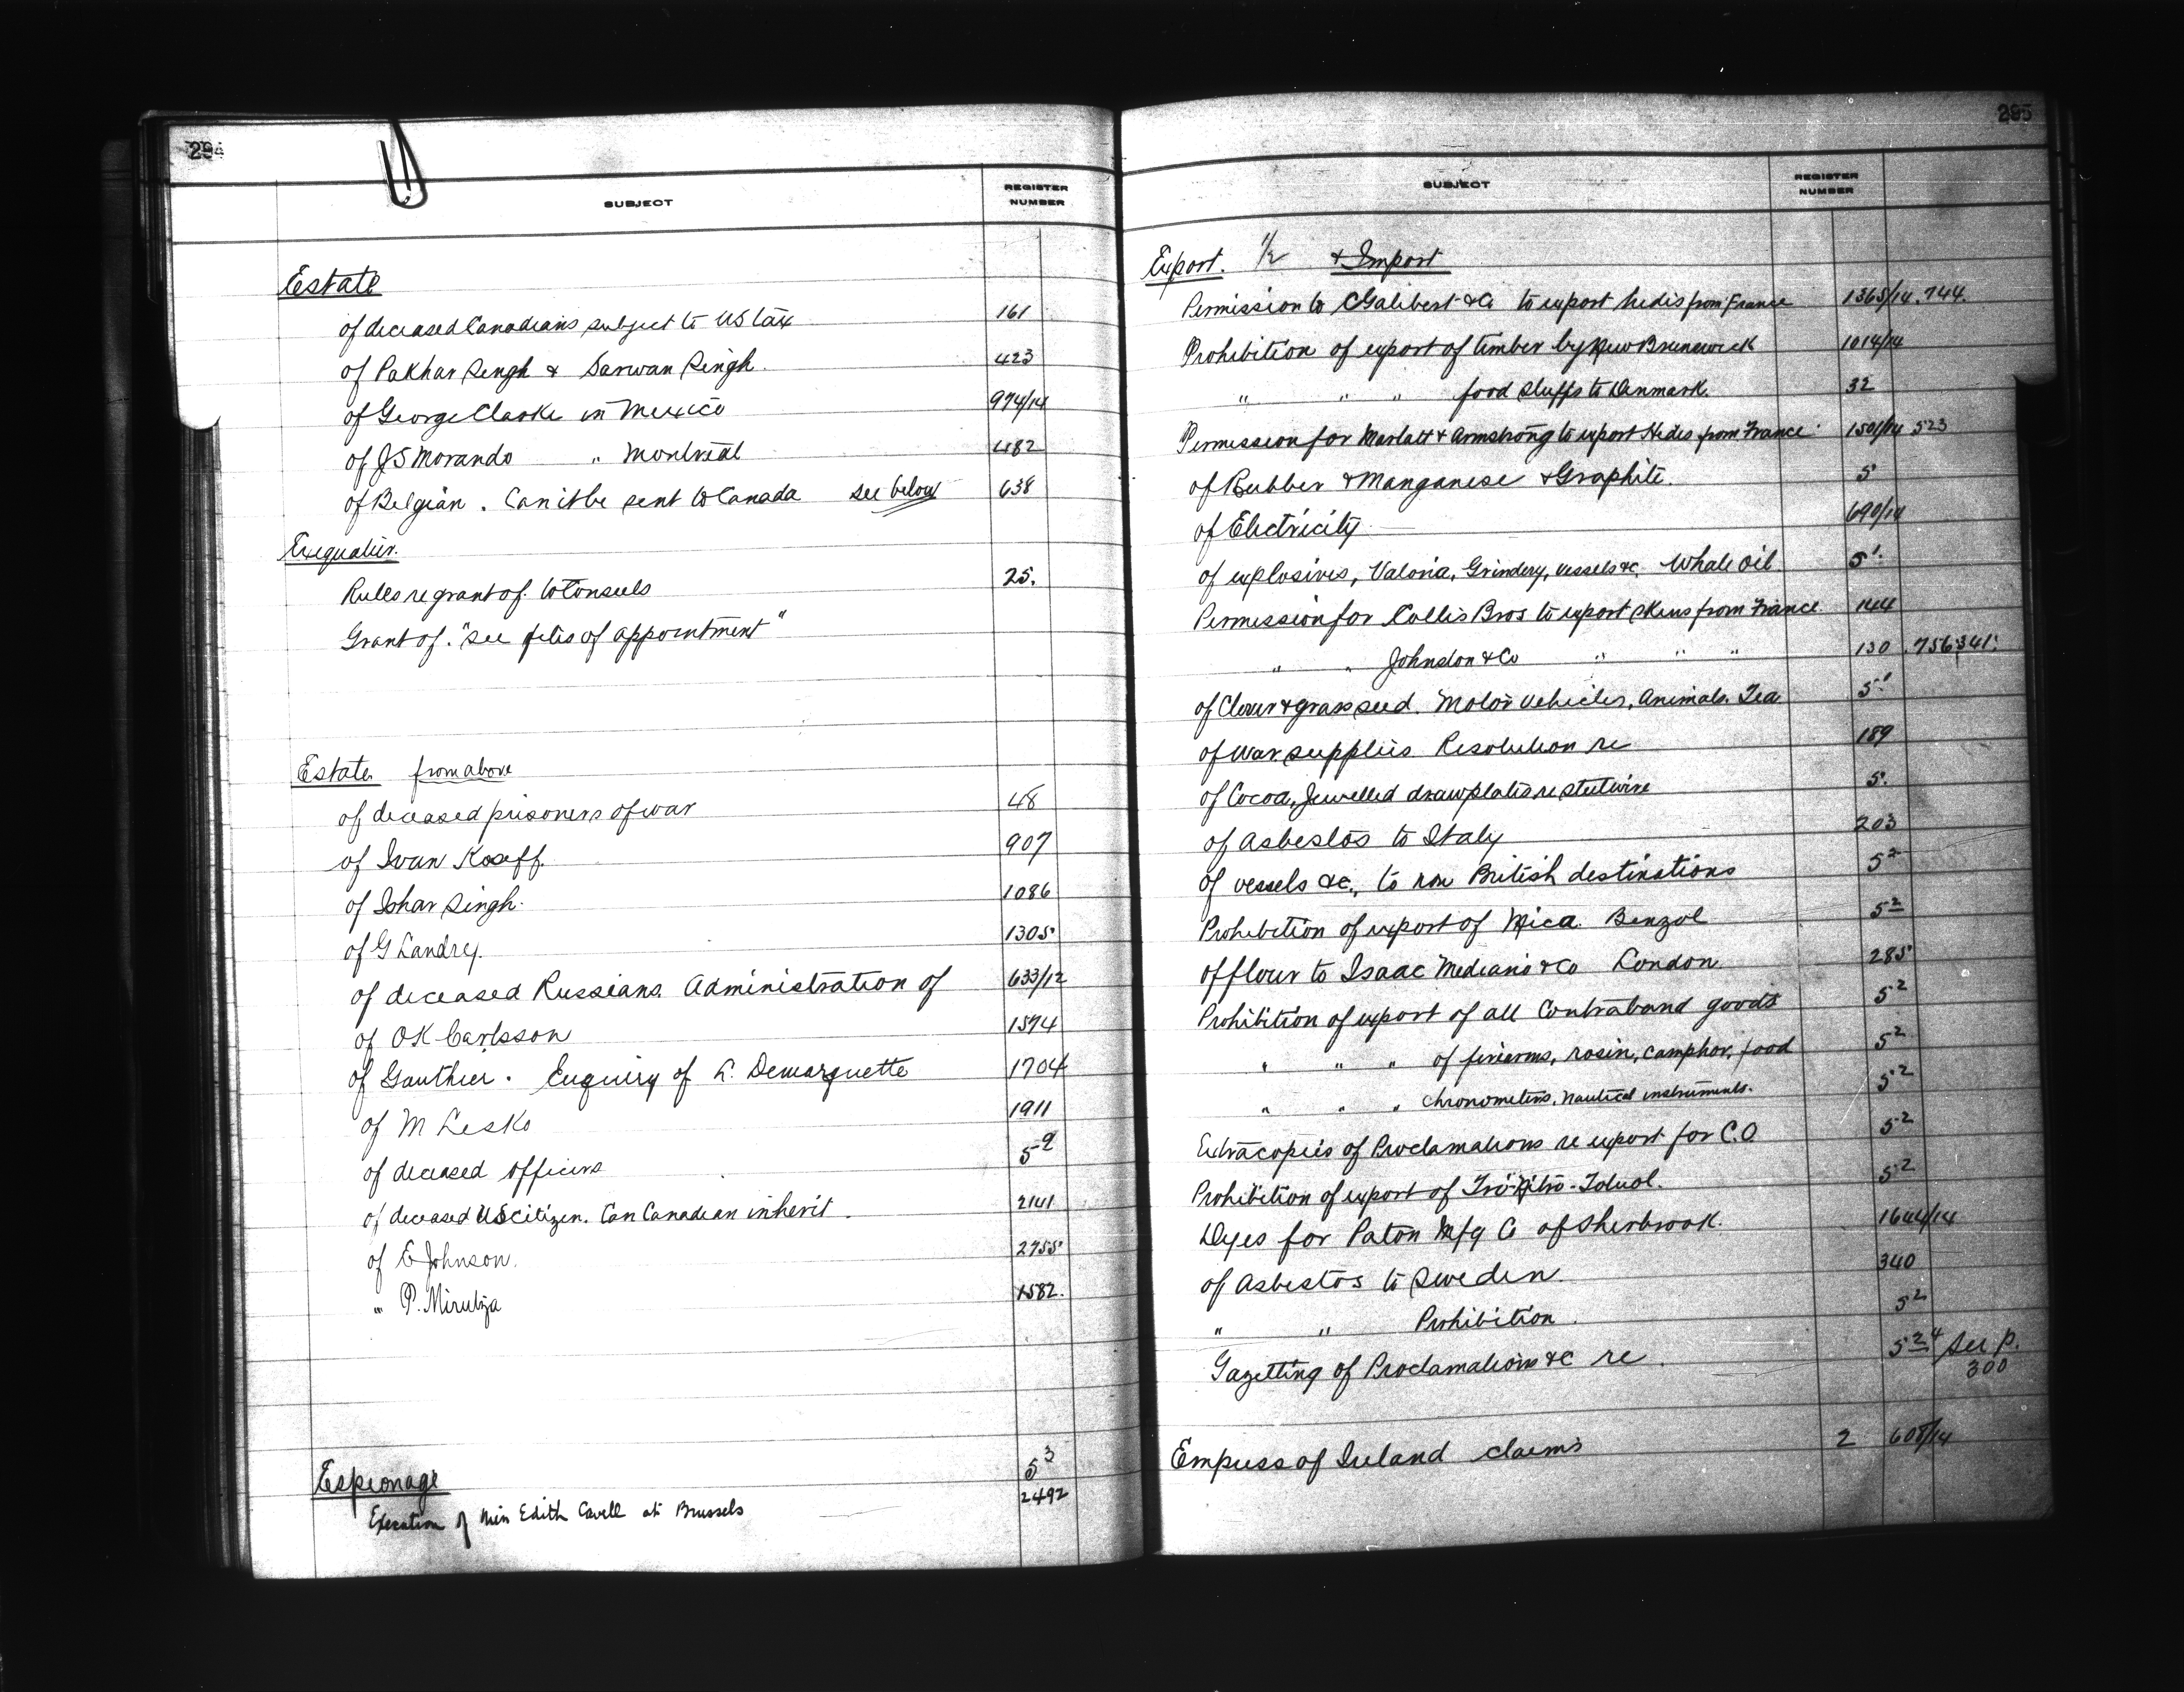 294
SUBJECT REGISTER NUMBER
Estate
of deceased Canadians subject to US tax 161
of Pakhar Singh & Sarwan Singh. 423
of George Clarke in Mexico 974/14
of J S Morando " Montreal 482
of Belgian. Can it be sent to Canada see below 638
Exequatur.
Rules re grant of. to Consuls 25.
Grant of. "See files of appointment"
Estate from above
of deceased prisoners of war 48
of Ivan Koseff. 907
of Ishar Singh. 1086
of G Landry. 1305
of deceased Russians. Administration of 633/12
of O K Carlsson 1594
of Gauthier. Enquiry of L. Demarquette 1704
of M Lesko 1911
of deceased officers 5 9
of deceased US Citizen. Can Canadian inherit. 2141
of E Johnson. 2755
" P. Mirutza 1582.
Espionage 5 3
Execution of Miss Edith Cavell at Brussels 2492
295
SUBJECT REGISTER NUMBER
Export. 1/2 & Import
Permission to C Galibert & Co to export hides from France 1365/14. 744.
Prohibition of export of timber by New Brunswick 1014/14
" " " food stuffs to Denmark. 32
Permission for Marlatt & Armstrong to export Hides from France 1501/14 523
of Rubber & Manganese & Graphite. 5
of Electricity 690/14
of explosives, Valonia, Grindery, vessels &c, Whale Oil 5 1.
Permission for Collis Bros to export skins from France 144
" " Johnston & Co " " " 130 756 341.
of Clover & grass seed. Motor Vehicles, Animals. Tea 5 1
of War supplies Resolution re 189
of Cocoa, Jewelled drawplates re steel wire 5.
of Asbestos to Italy 203
of vessels &c., to non British destinations 5 2
Prohibition of export of Mica. Benzol 5 2
of flour to Isaac & Co London 285
Prohibition of export of all Contraband goods 5 2
" " " of firearms, rosin, camphor, food 5 2
" " " Chronometers, Nautical instruments. 5 2
Extra copies of Proclamations re export for C.O 5 2
Prohibition of export of Tri-Nitro-Toluol. 5 2
Dyes for Paton Mfg Co of Sherbrook. 1644/14
of Asbestos to Sweden. 340
" " Prohibition. 5 2
Gazetting of Proclamations &c re. 5 2 4 See p. 300
Empress of Ireland claims 2 608/14